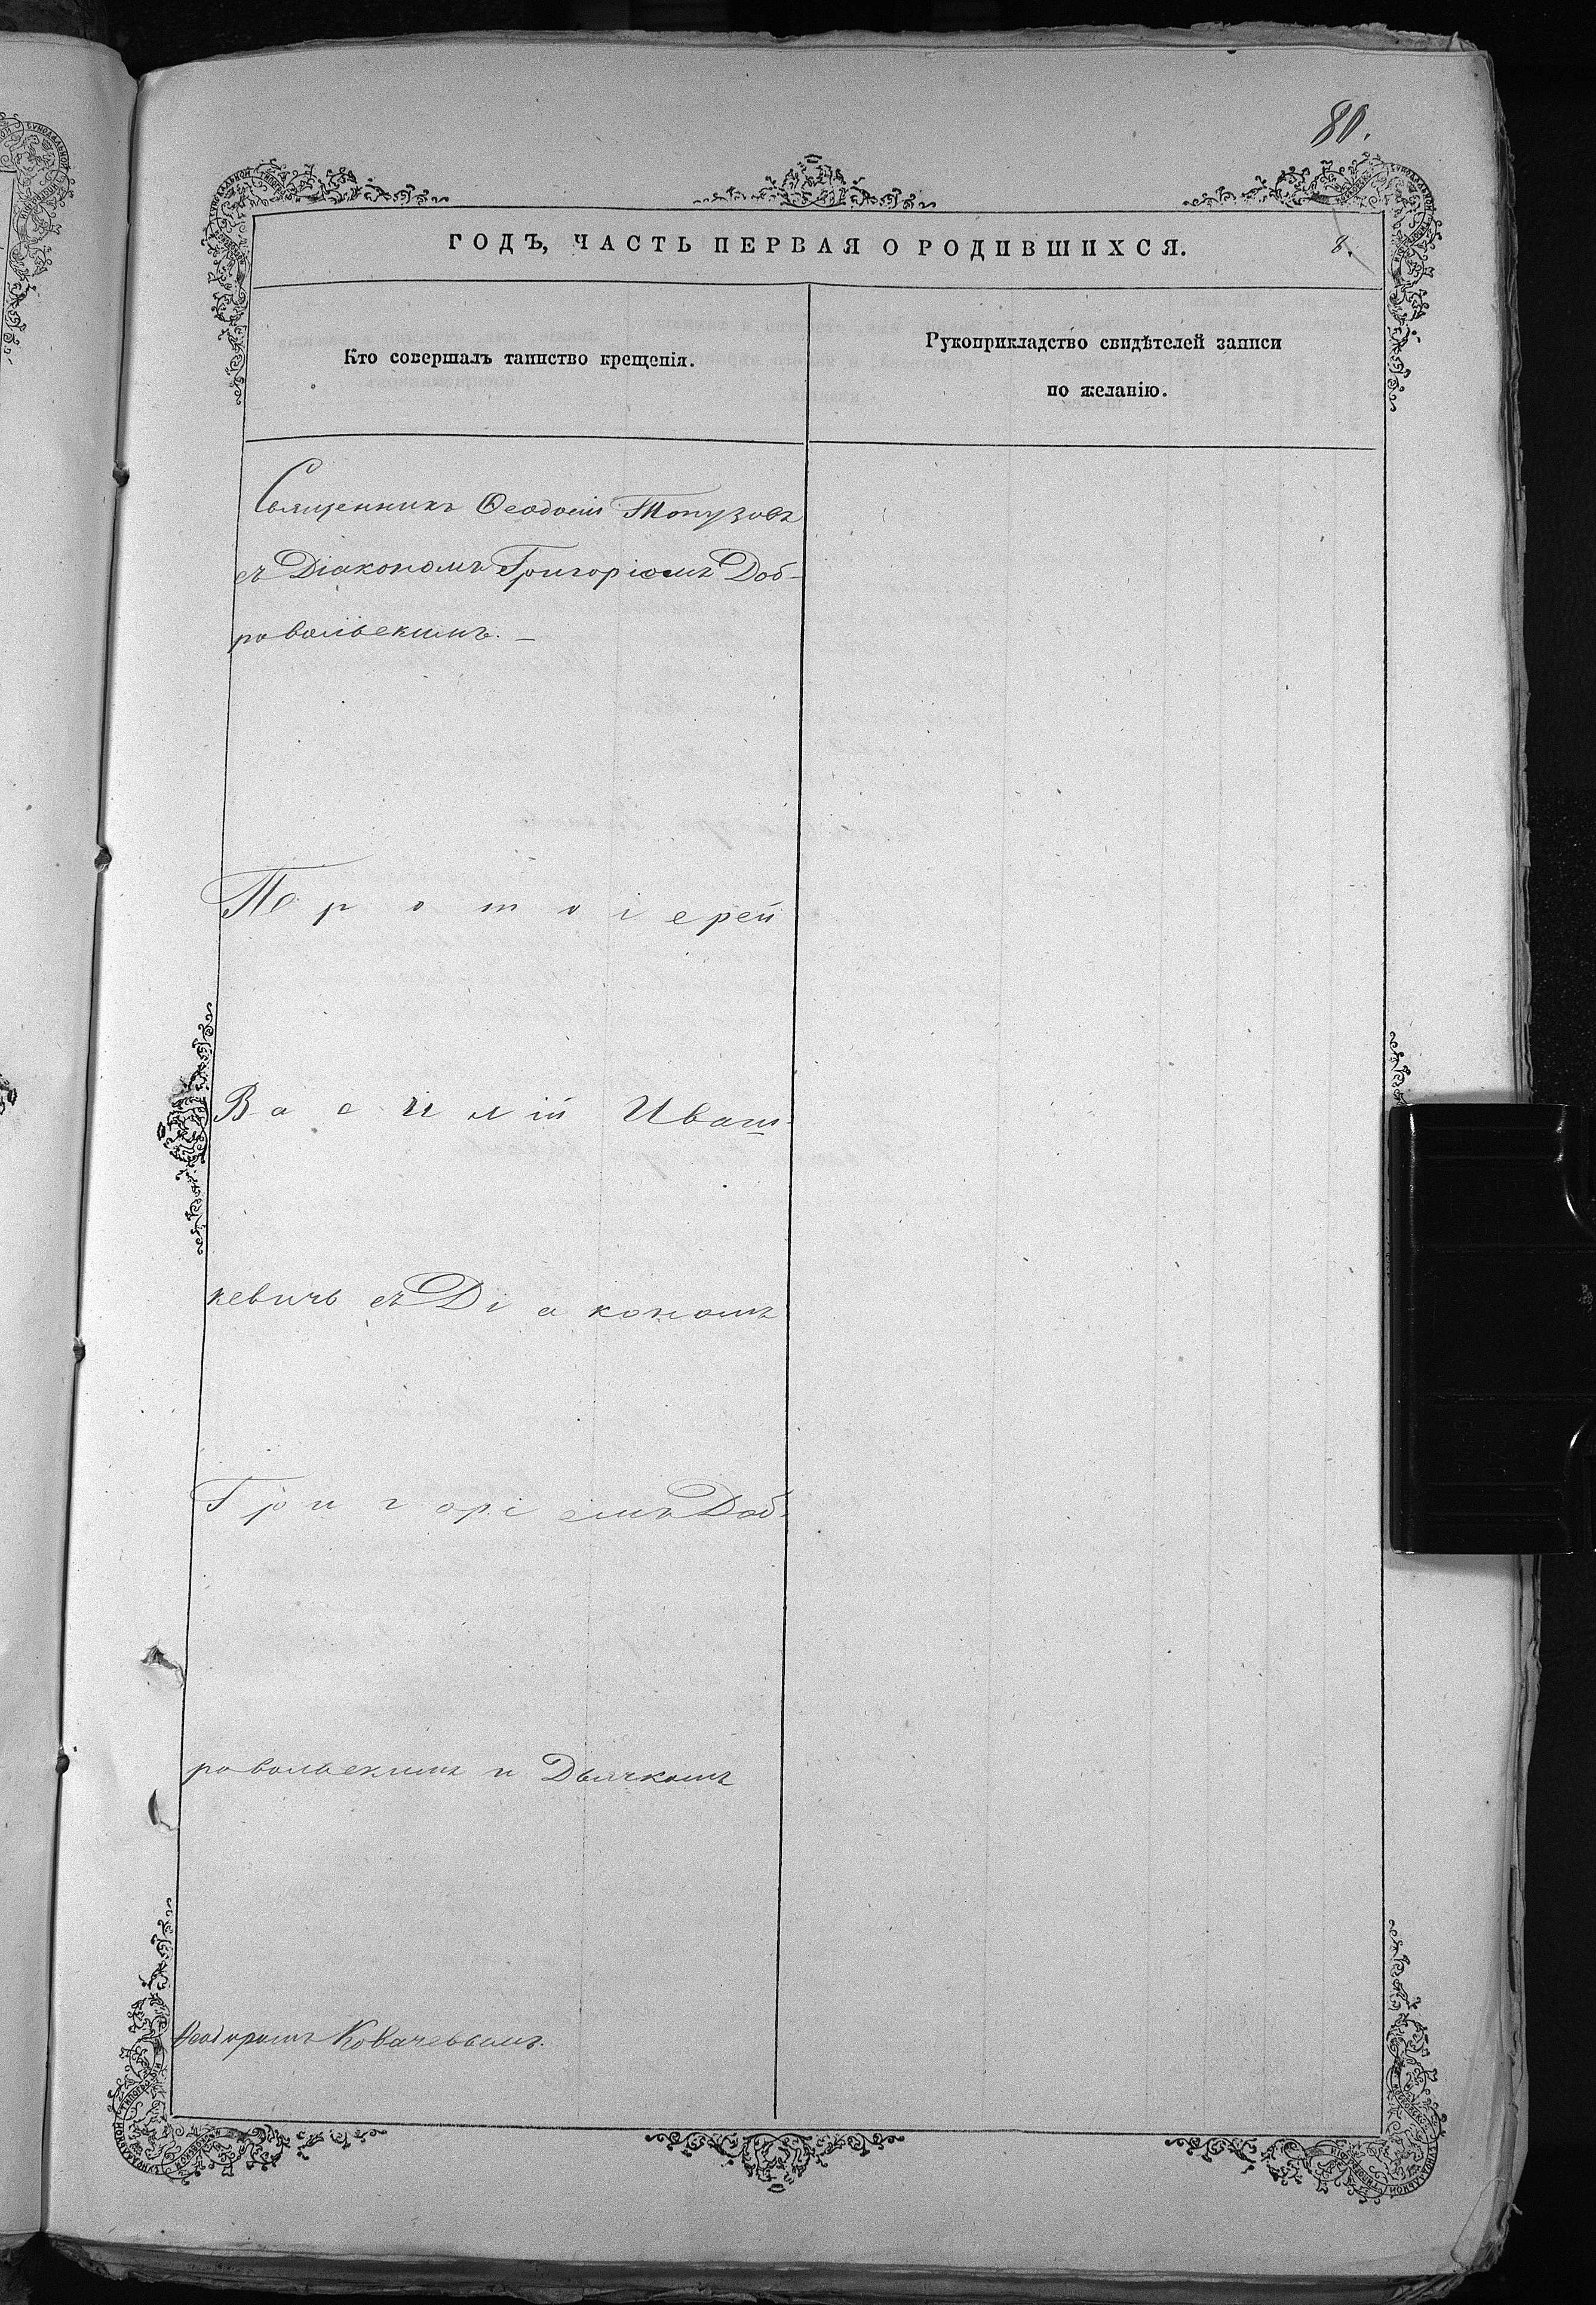 80.
ГОДЪ, ЧАСТЬ ПЕРВАЯ О РОДИВШИХСЯ.
8.
Кто совершалъ таинство крещенія.
Рукоприкладство свидѣтелей записи
по желанію.
Священникъ Ѳеодосій Топузовъ
съ Діакономъ Григоріемъ Доб-
ровольскимъ. –
Протоіерей
Василій Иваш-
кевичъ съ Діакономъ
Григоріемъ Доб-
ровольскимъ и Дьячкомъ
Ѳеодоромъ Ковачевымъ.